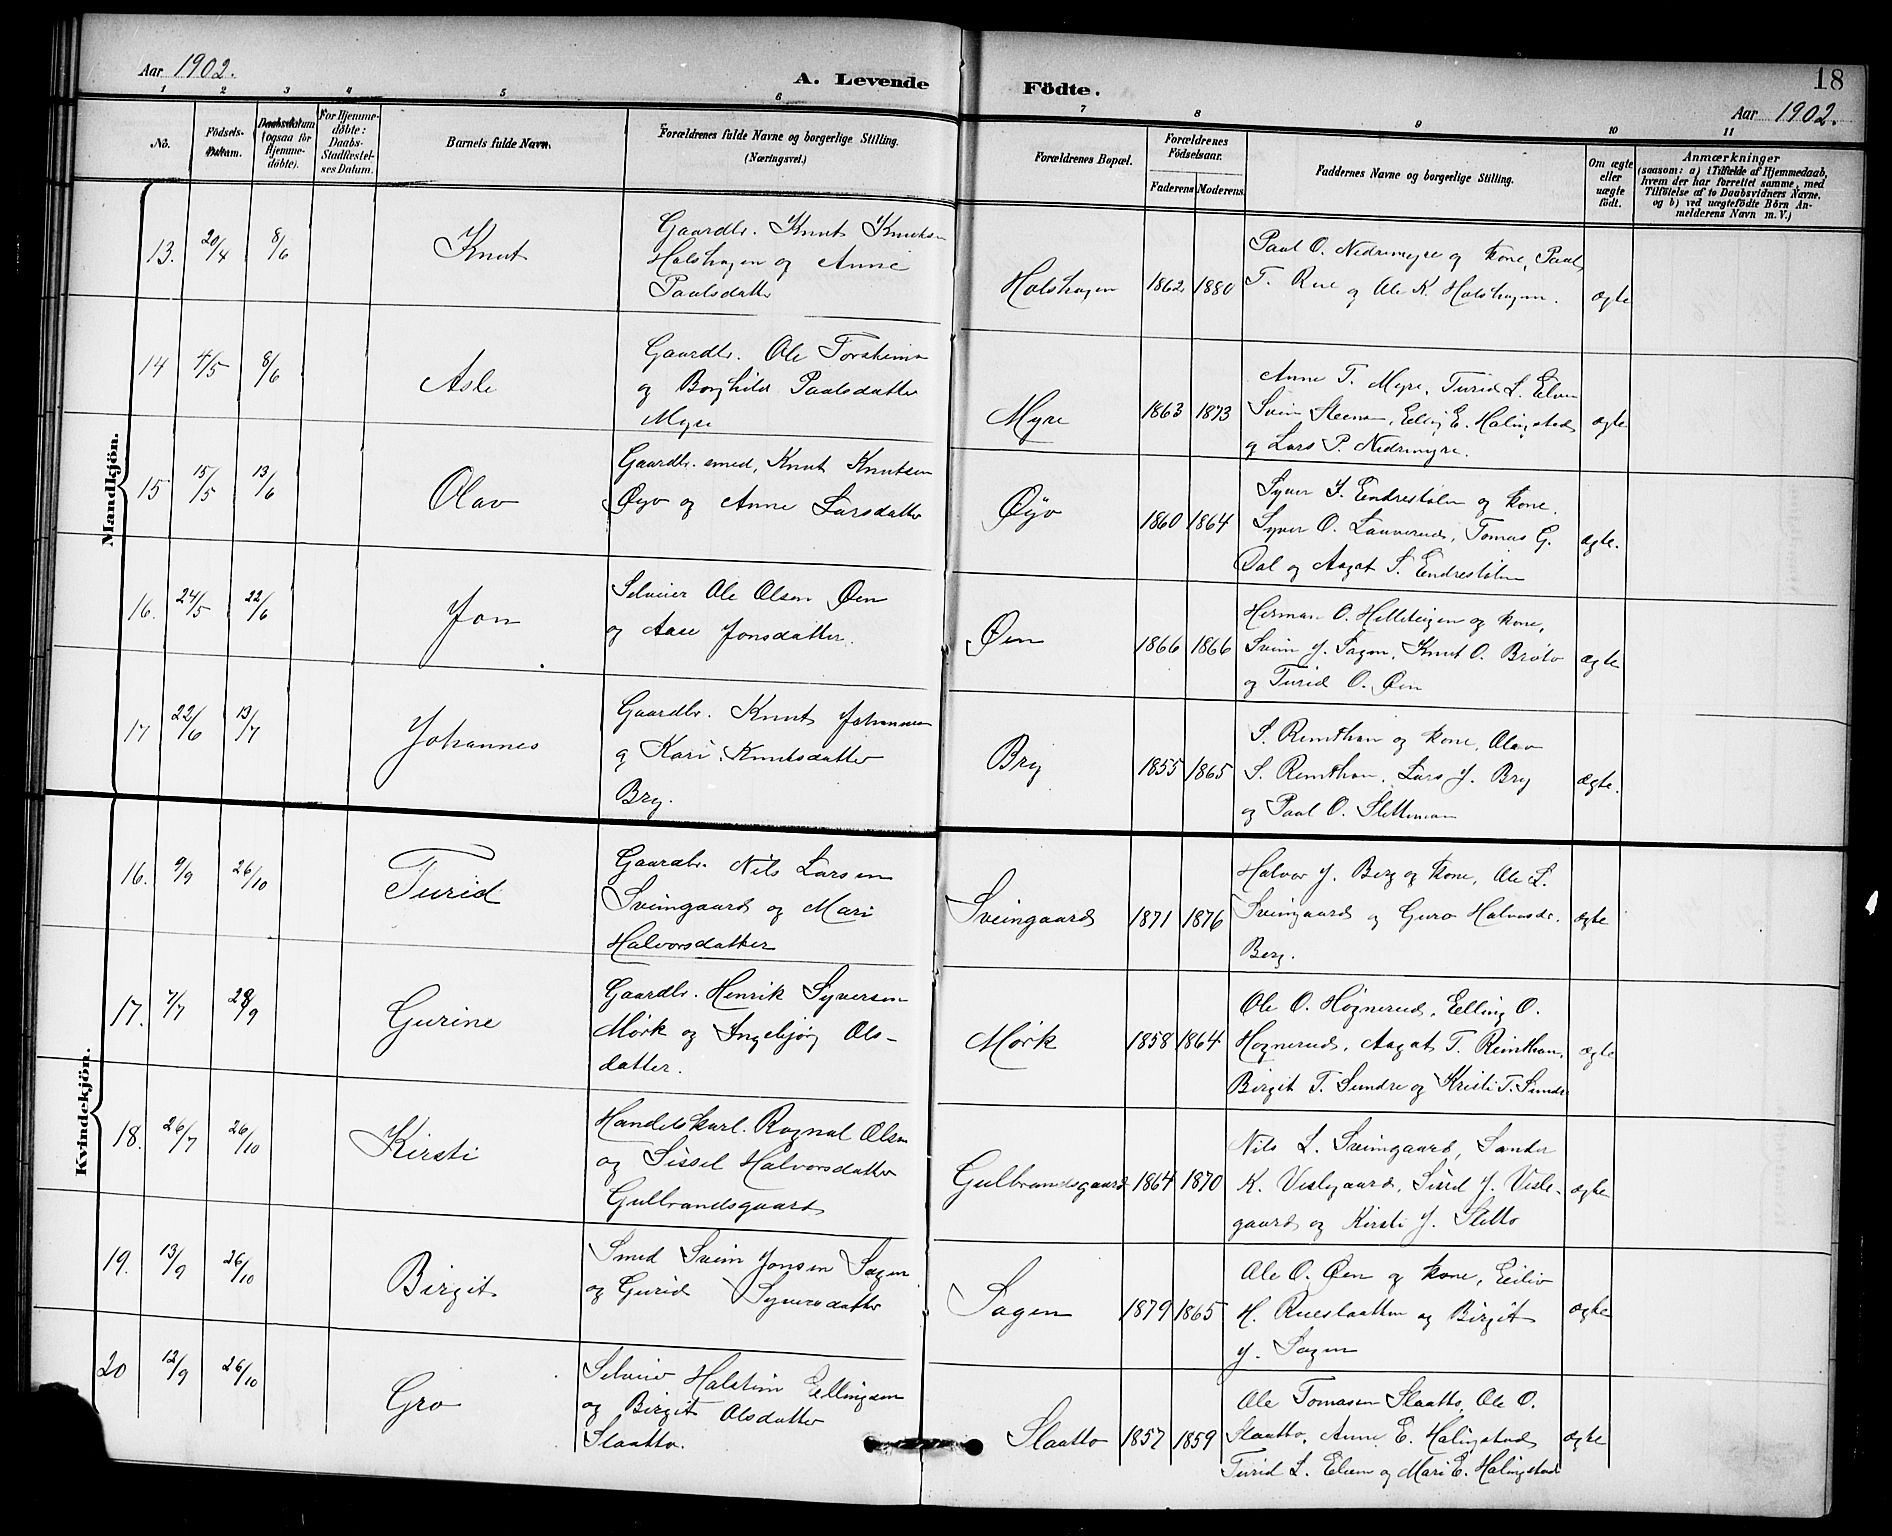 18
Aar 1902.
A. Levende Födte.
Aar 1902.
1 2 3 4 5 6 7 8 9 10 11
No.
Födsels-Datum.
Daabsdatum (ogsaa for Hjemmedöbte).
For Hjemmedöbte: Daabs-Stadfæstelses Datum.
Barnets fulde Navn.
Forældrenes fulde Navne og borgerlige Stilling. (Næringsvei.)
Forældrenes Bopæl.
Forældrenes Födselsaar.
Faderens Moderens
Faddernes Navne og borgerlige Stilling.
Om ægte eller uægte födt.
Anmærkninger
(saasom: a) i Tilfælde af Hjemmedaab, hvem der har forrettet samme, med Tilföielse af to Daabsvidners Navne. og b) ved uægtefödte Börn Anmelderens Navn m. V.)
Mandkjön.
13. 20/4 8/6 Knut
Gaardbr. Knut Knutsen
Halshagen og Anne
Paalsdatter
Halshagen 1862 1880
Paal O. Nedremyre og kone, Paal
T. Rue og Ole K. Halshagen.
ægte
14 4/5 8/6 Asle
Gaardbr. Ole Torsteinsen
og Borghild Paalsdatter
Myre
Myre 1863 1873
Anne T. Myre, Turid L. Elven
Svein Steensen, Elling E. Halingstad
og Lars P. Nedremyre.
ægte
15 15/5 13/6 Olav
Gaardbr. smed, Knut Knutsen
Øyo og Anne Larsdatter
Øyo 1860 1864
Syver S. Endrestølen og kone,
Syver O. Lauverud, Tomas G.
Dal og Aagot S. Endrestølen
ægte.
16. 24/5 22/6 Jon
Selveier Ole Olsen Øen
og Aase Jonsdatter.
Øen 1866 1866
Herman O. Helleteigen og kone,
Svein J. Sagen, Knut O. Bråto
og Turid O. Øen
ægte
17 22/6 13/7 Johannes
Gaardbr. Knut Johannesen
og Kari Knutsdatter
Bry.
Bry 1855 1865
S. Reinthon og kone, Olav
S. Reinthon, Lars J. Bry
og Paul O. Slettemoen
ægte.
Kvindekjön.
16. 9/9 26/10 Turid
Gaardbr. Nils Larsen
Sveingaard og Mari
Halvorsdatter
Sveingaard 1871 1876
Halvor J. Berg og kone, Ole L.
Sveingaard og Guro Halvorsdr.
Berg.
ægte
17. 7/7 28/9 Gurine
Gaardbr. Henrik Syversen
Mørk og Ingebjørg Ols-
datter.
Mørk 1858 1864
Ole O. Høgnerud, Elling O.
Høgnerud, Aagot T. Reinthon,
Birgit T. Sundre og Kristi T. Sundre
ægte
18. 26/7 26/10 Kirsti
Handelskarl. Ragnal Olsen
og Sissel Halvorsdatter
Gulbrandsgaard
Gulbrandsgaard 1864 1870
Nils L. Sveingaard, Sander
K. Veslegaard, Sissel J. Vesle-
gaard og Kirsti J. Sletto
ægte
19. 13/9 26/10 Birgit
Smed Svein Jonsen Sagen
og Gurid Syversdatter
Sagen 1879 1865
Ole O. Øen og kone, Eiliv
H. Rueslaatten og Birgit
J. Sagen
ægte
20 12/9 26/10 Gro
Selveier Halstein Ellingsen
og Birgit Olsdatter
Slaatto.
Slaatto 1857 1859
Ole Tomasen Slaatto, Ole O.
Slaatto, Anne E. Halingstad
Turid L. Elven og Mari E. Halingstad
ægte